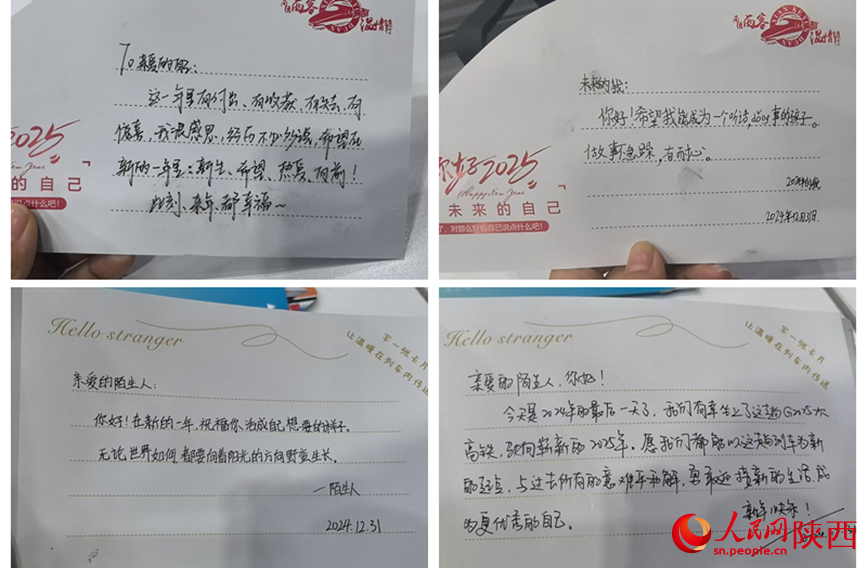 西客
温情伴
To 亲爱的
这一年里有付出、有收获、有失去、有
惊喜,我很感恩,经历不少
希望在
新的一年里:新生、希望、热爱、向前!
此刻、来年、都幸福~
2025
New Year
的自己
说点什么吧!
西客
温情伴
未来的我:
你好!希望我能成为一个听话,
事的孩子。
做事急躁,有耐心。
2024年12月31日
你好2025
Happy New Year
未来的自己
对那么好的自己说点什么吧!
Hello stranger
写一张卡片
让温暖在列车内传递
亲爱的陌生人:
你好!在新的一年,祝福你活成自己想要的样子。
无论世界如何,都要向着阳光的方向野蛮生长。
一陌生人
2024.12.31
Hello stranger
写一张卡片
让温暖在列车内传递
亲爱的陌生人,你好!
今天是2024年的最后一天了,我们有幸坐上了这趟G2025次
高铁,驶向崭新的2025年。愿我们都能以这趟列车为新
的起点,与过去所有的意难平和解,勇敢迎接新的生活,成
为更优秀的自己。
新年快乐!
人民网 陕西
sn.people.cn